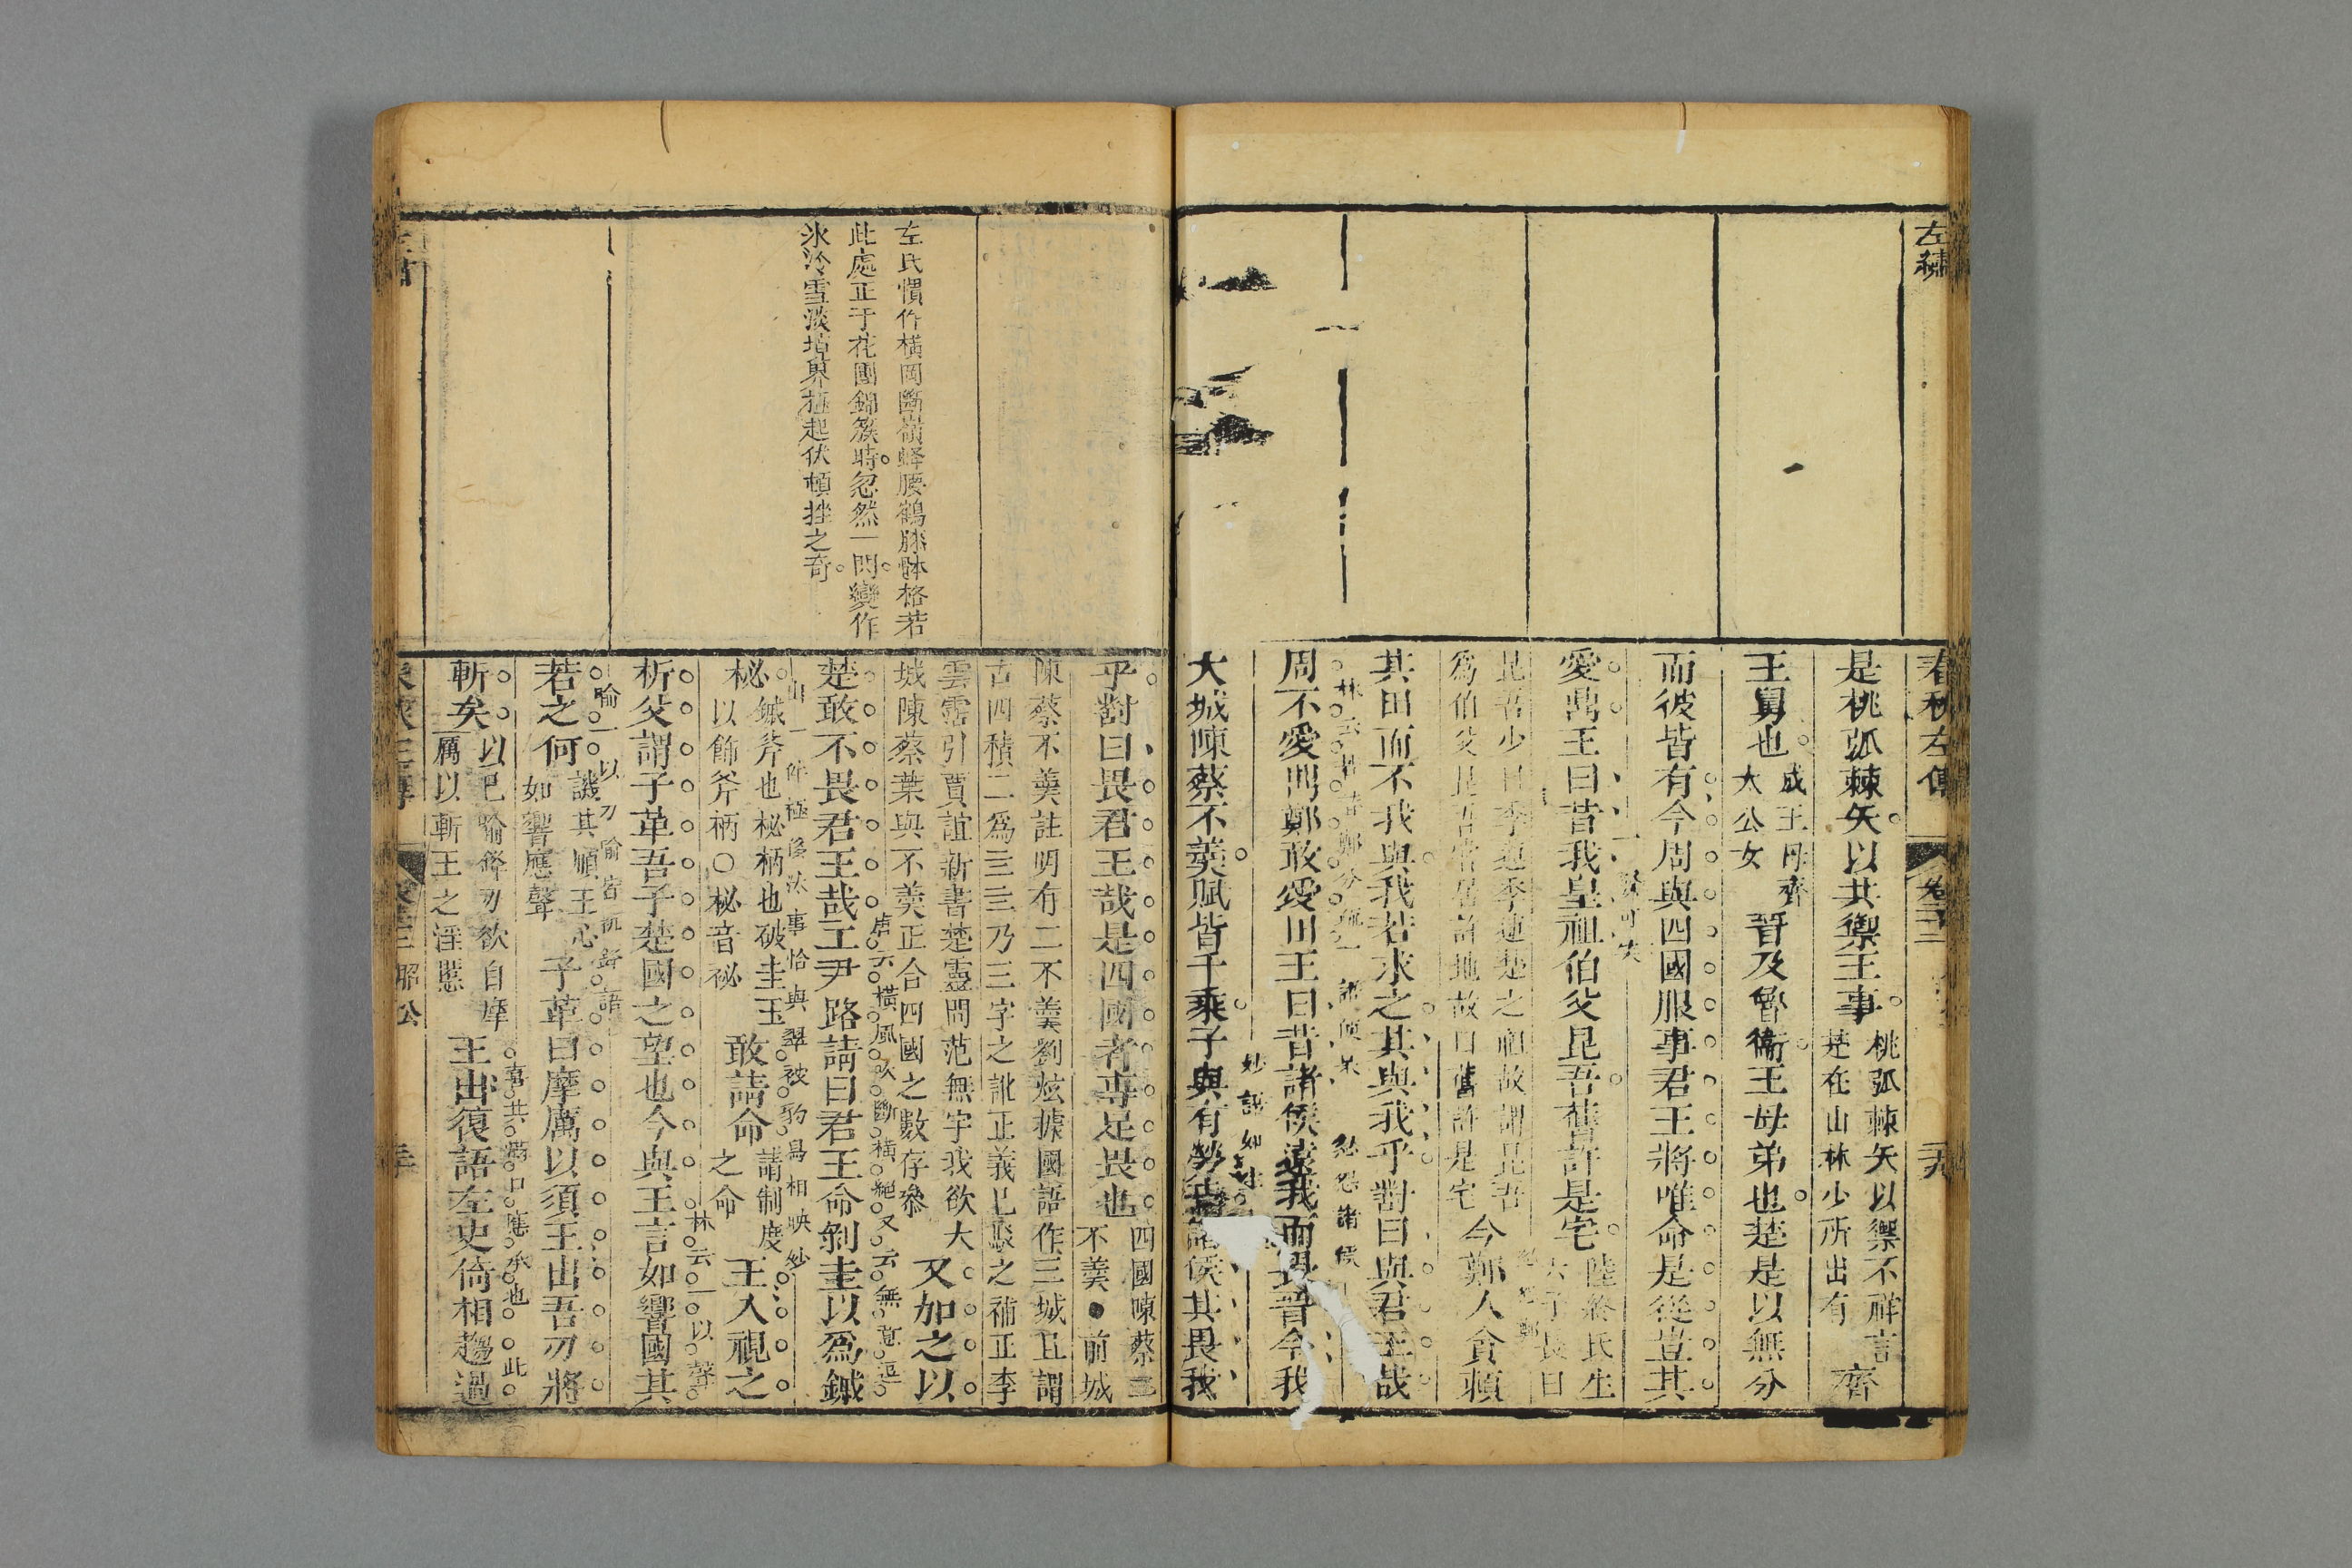 左繡
春秋左傳
卷二十二
是桃弧棘矢以共禦王事桃弧棘矢以禦不祥言楚在山林少所出有齊
王舅也成王母齊大公女晉及魯衞王母弟也楚是以無分
而彼皆有今周與四國服事君王將唯命是從豈其
愛鼎王曰昔我皇祖伯父昆吾舊許是宅陸終氏生六子長曰
昆吾少曰季連季連楚之祖故謂昆吾爲伯父昆吾嘗居許地故曰舊許是宅今鄭人貪賴
其田而不我與我若求之其與我乎對曰與君王哉
周不愛鼎鄭敢愛田王曰昔諸侯遠我而畏晉今我
大城陳蔡不羹賦皆千乘子與有勞焉諸侯其畏我
左氏慣作橫岡斷嶺蜂腰鶴膝體格若
此處正于花團錦簇時忽然一閃變作
氷冷雪淡境界極起伏頓挫之奇
乎對曰畏君王哉是四國者專足畏也四國陳蔡二不羹●前城
陳蔡不羹註明有二不羹劉炫據國語作三城且謂
古四積二爲亖亖乃三字之訛正義已駁之補正李
雲霑引賈誼新書楚靈問范無宇我欲大
城陳蔡葉與不羹正合四國之數存參又加之以
唐云橫風吹斷橫絕又云無意
楚敢不畏君王哉工尹路請曰君王命剝圭以爲鏚
一件極後汰事恰與翠被豹舄相映妙
柲鏚斧也柲柄也破圭玉以飾斧柄○柲音祕敢請命請制度之命王入視之
林云一以聲
析父謂子革吾子楚國之望也今與王言如響國其
喻一以刃喻皆諷諫語
若之何譏其順王心如響應聲子革曰摩厲以須王出吾刃將
斬矣以己喻鋒刃欲自摩厲以斬王之淫慝王出復語左史倚相趨過
昭公